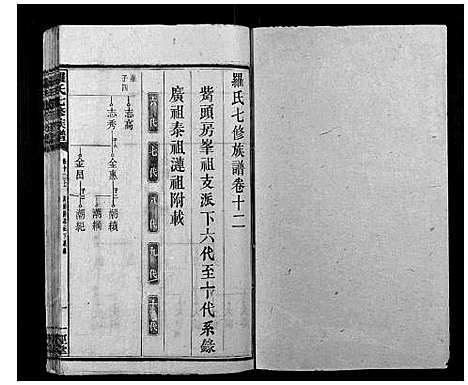 羅氏七修族譜卷十二
觜頭房峯祖支派下六代至十代系錄
廣祖泰祖漣祖附載
六代 七代 八代 九代 十代
子四
志高
志秀
全惠
金昌
潮縝
潮綱
潮紀
羅氏七修族譜